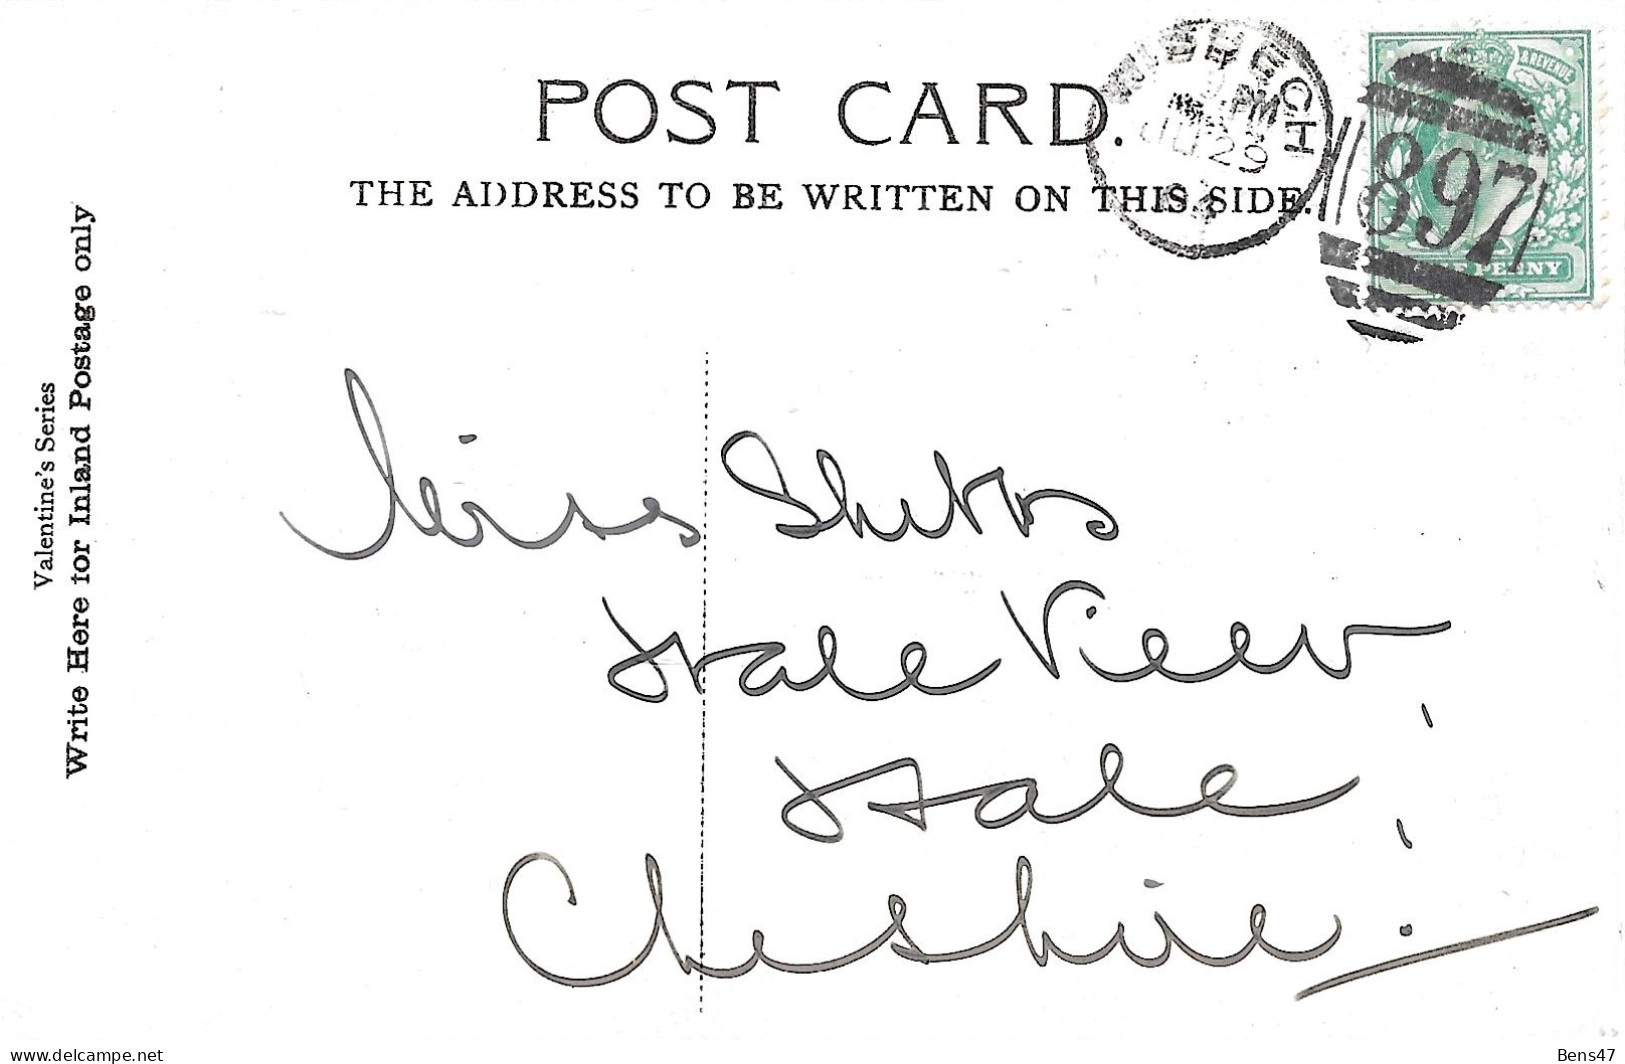 POST CARD.
THE ADDRESS TO BE WRITTEN ON THIS SIDE.
WISBECH
PM
29
& REVENUE
897
PENNY
Valentine's Series
Write Here for Inland Postage only
Miss
Hale View
Hale
Cheshire
delcampe.net
Bens47